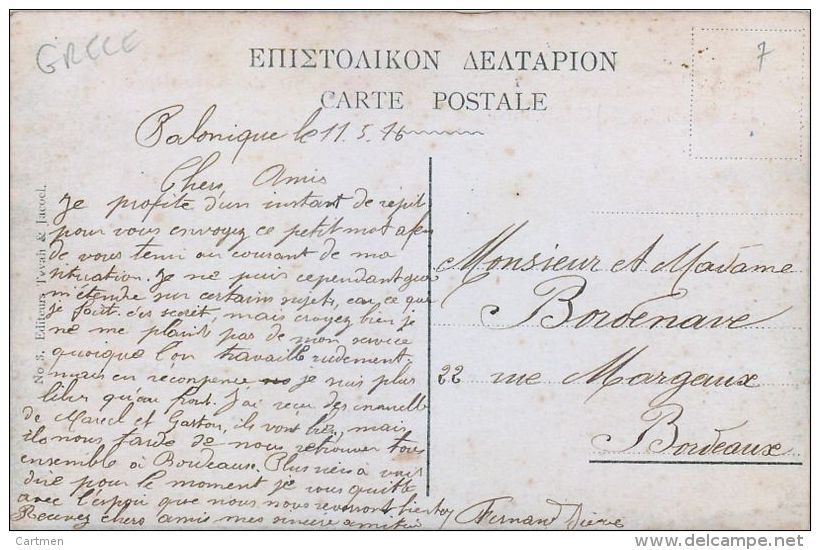 GRECE
7
ΕΠΙΣΤΟΛΙΚΟΝ ΔΕΛΤΑΡΙΟΝ
CARTE POSTALE
Salonique le 11.5.16
Chers Amis
Je profite d'un instant de répit
pour vous envoyez ce petit mot afin
de vous tenir au courant de ma
situation. Je ne puis cependant que
m'étendre sur certains sujets, car ce que
je fait c'es secrèt, mais croyez bien je
ne me plaint pas de mon service
quoique l'on travaille rudement
mais en réconpence je suis plus
libre qu'au front. J'ai reçu des nouvelle
de Marcel et Gaston, ils vont bien, mais
ils nous tarde de nous retrouver tous
ensemble à Bordeaux. Plus rien à vous
dire pour le moment je vous quitte
avec l'espoir que nous nous reverront bientot
Recevez chers amis mes sincère amitiés
Fernand
Monsieur et Madame
Bordenave
22 rue Margaux
Bordeaux
No 3. Editeurs & Jacoel.
Cartmen
delcampe.net